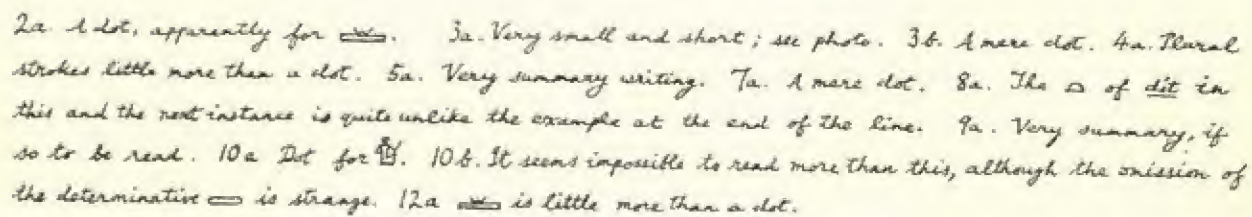 2a. A dot, apparently for . 3a. Very small and short; see photo. 3b. A mere dot. 4a. Plural
strokes little more than a dot. 5a. Very summary writing. 7a. A mere dot. 8a. The 𓏏 of dit in
this and the next instance is quite unlike the example at the end of the line. 9a. Very summary, if
so to be read. 10a Dot for . 10b. It seems impossible to read more than this, although the omission of
the determinative is strange. 12a is little more than a dot.